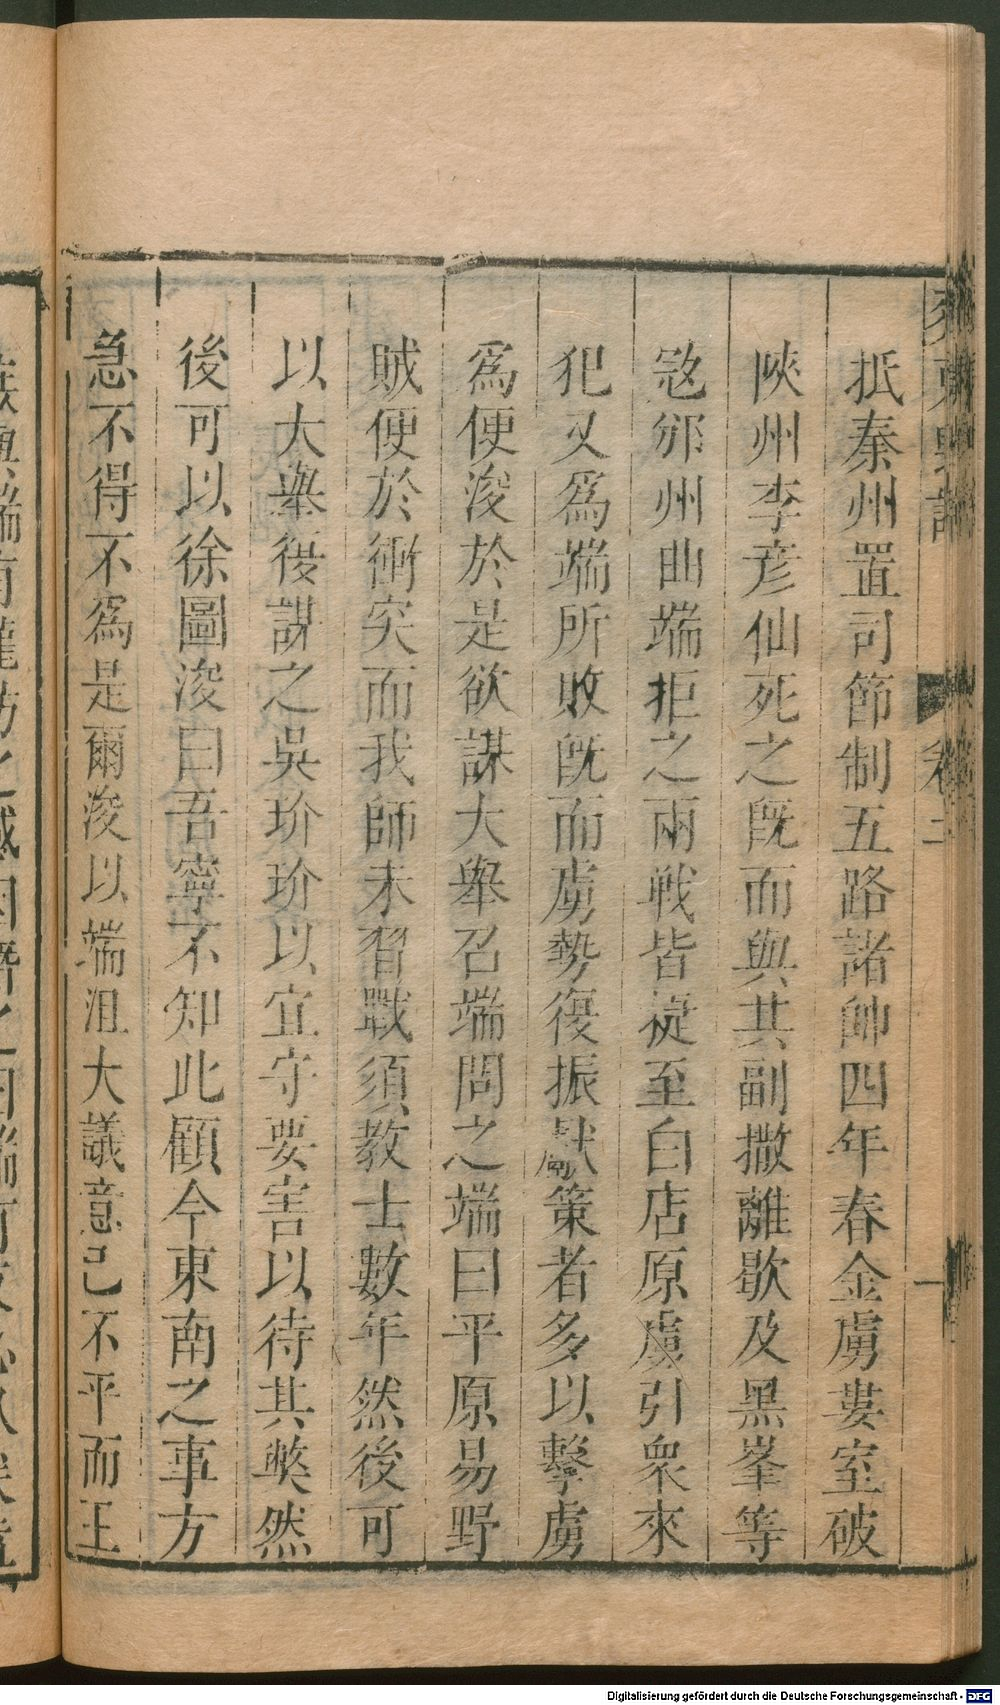 抵秦州置司節制五路諸帥四年春金虜婁室破
陜州李彥仙死之旣而與其副撒離歇及黑峯等
宼邠州曲端拒之兩戰皆㨗至白店原虜引衆來
犯又爲端所敗旣而虜勢復振獻策者多以擊虜
爲便浚於是欲謀大舉召端問之端曰平原易野
賊便於衝突而我師未習戰須教士數年然後可
以大舉復謀之吳玠玠以宜守要害以待其弊然
後可以徐圖浚曰吾寧不知此顧今東南之事方
急不得不爲是爾浚以端沮大議意已不平而王
卷二
一
Digitalisierung gefördert durch die Deutsche Forschungsgemeinschaft - DFG